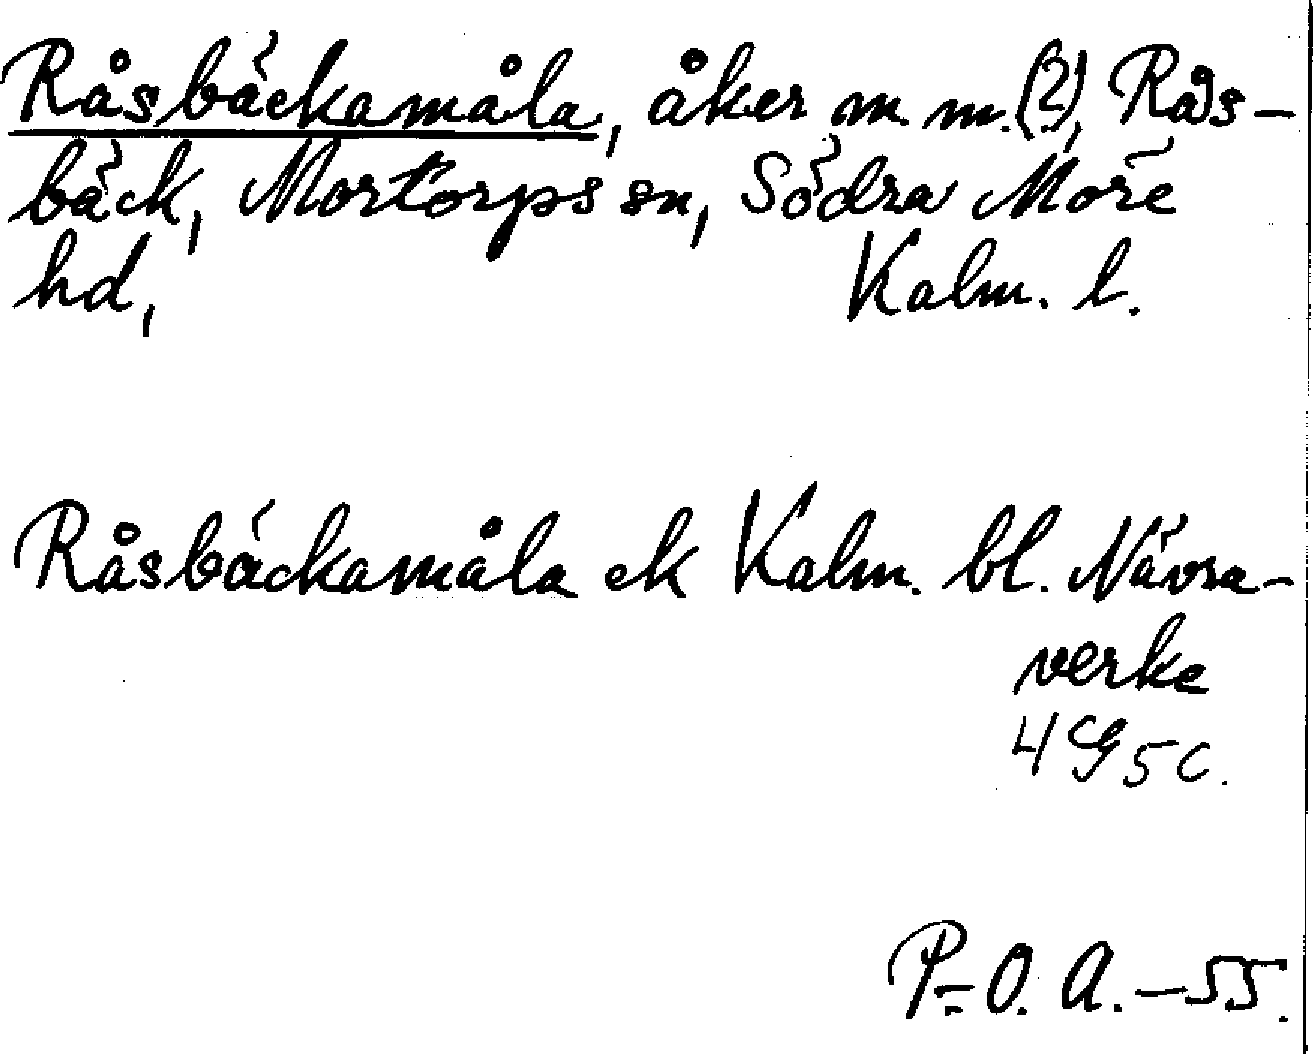 Råsbäckamåla, åker m. m. (?), Rås-
bäck, Mortorps sn, Södra Möre
hd, Kalm. l.
Råsbäckamåla ek Kalm. bl. Nävra-
verke
4G5c.
P-O. A. -55.